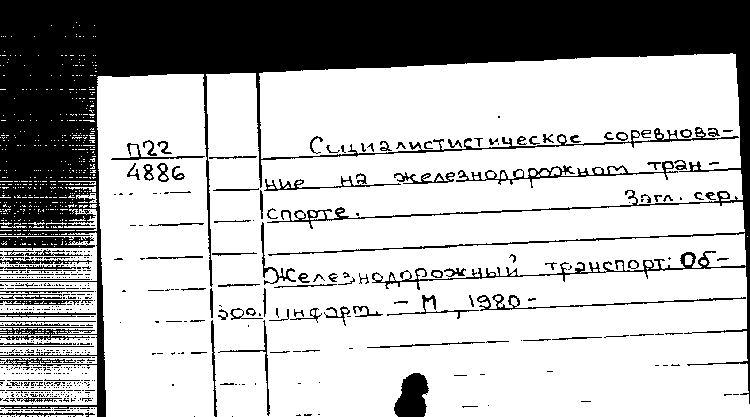 П22
4886
Социалистистическое соревнова-
ние на железнодорожном тран-
спорте. Загл. сер.
Железнодорожный транспорт: Об-
300. информ. - М., 1980 -